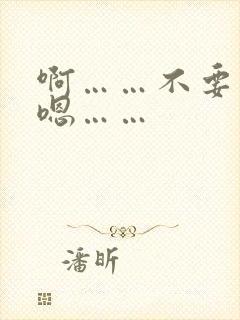 啊……不要
嗯……
潘昕